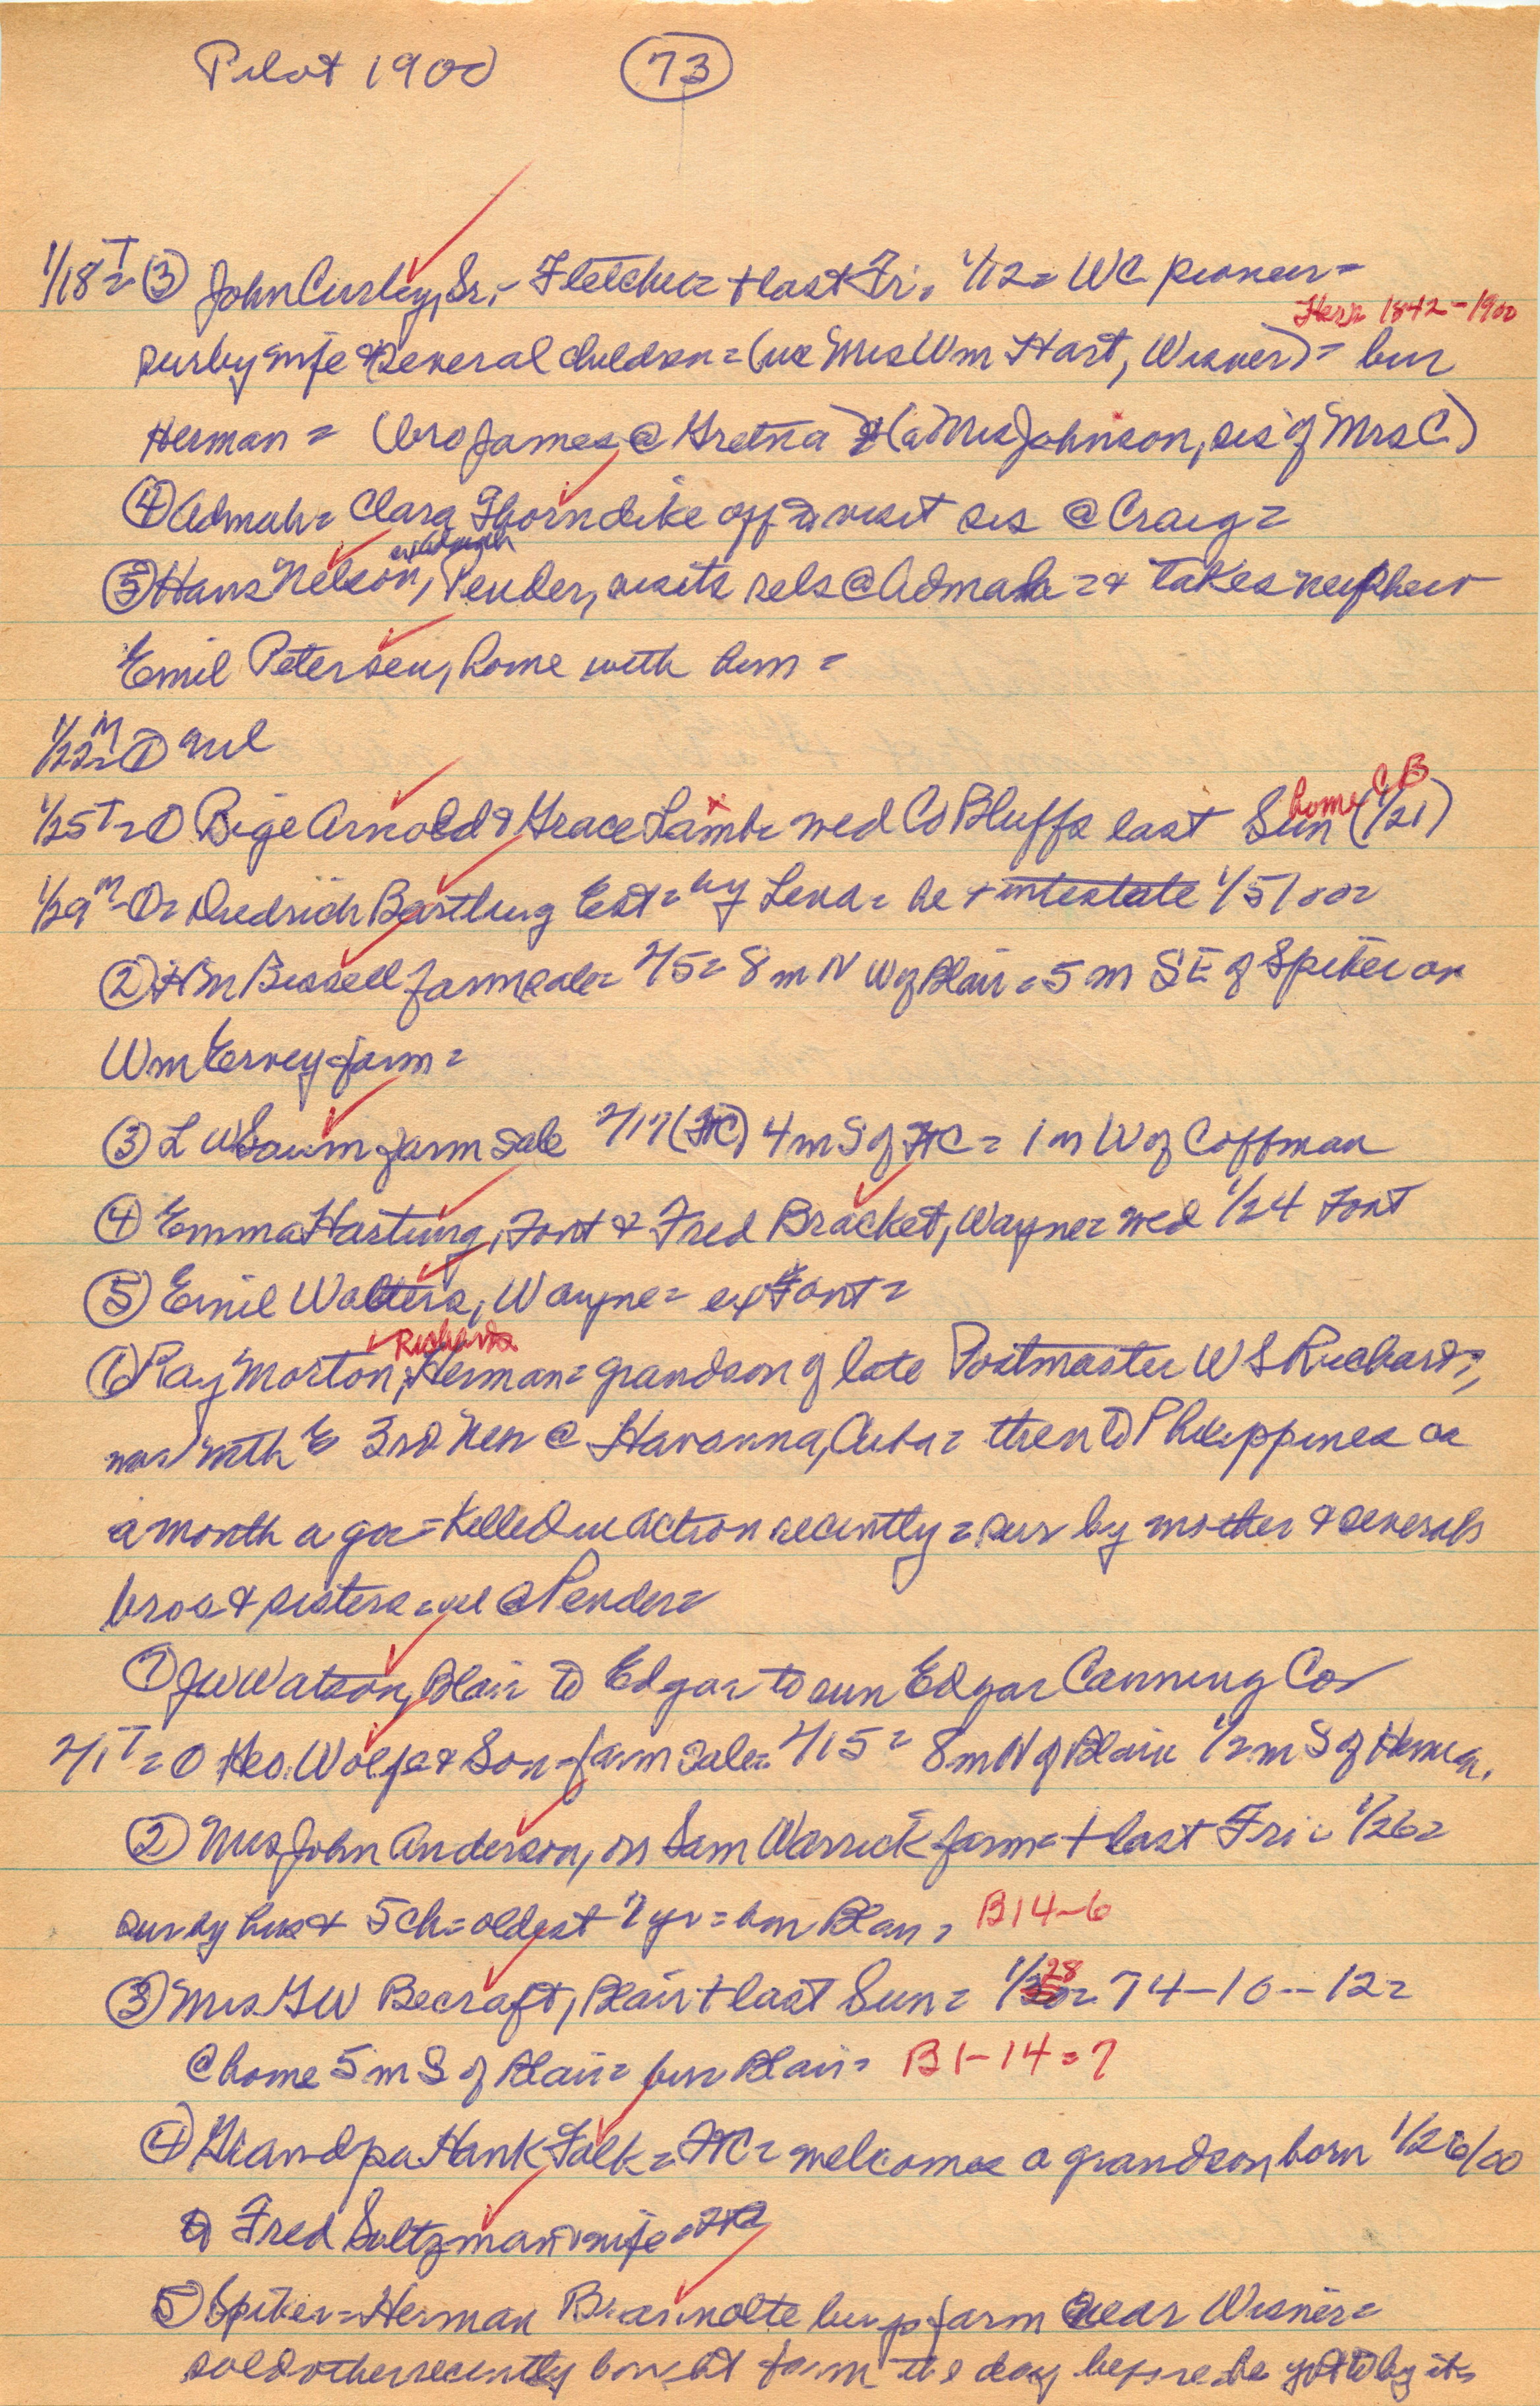 Pilot 1900 (73)
1/18 T = (3) John Curley, Sr, - Fletcher + last Fri, 1/12 = WC pioneer =
Herm 1842-1900
sur by wife & several children = (inc Mrs Wm Hart, Wisner) = bur
Herman = (bro James @ Gretna) & (a Mrs Johnson, sis of Mrs C.)
(4) Admah = Clara Thorndike off to visit sis @ Craig =
(5) Hans Nelson, Pender, visits rels @ Admah = & takes nephew
Emil Petersen, home with him =
1/22 M = (1) Nil
home C B
1/25 T = (1) Bige Arnold & Grace Lamb = wed Co Bluffs last Sun (1/21)
1/29 M - (1) = Diedrich Bartling Est = by Lena = he + intestate 1/5/00 =
(2) H M Bissell farm sale = 2/5 = 8 m N W of Blair = 5 m S E of Spiker on
Wm Ervey farm =
(3) L W Saum farm sale 2/17 (FtC) 4 m S of FtC = 1 m W of Coffman
(4) Emma Hartung, Font & Fred Bracket, Wayne = wed 1/24 Font
(5) Emil Walters, Wayne = ex Font =
Richards
(6) Ray Morton, Herman = grandson of late Postmaster W S Richards,
was with E 3rd Neb @ Havanna, Cuba = then to Philippines on
a month ago = Killed in action recently = sur by mother & several
bros & sisters = all @ Pender =
(7) J W Watson, Blair to Edgar to run Edgar Canning Co
2/1 T = (1) Geo. Wolfe & Son farm sale = 2/15 = 8 m N of Blair 1/2 m S of Herman.
(2) Mrs John Anderson, on Sam Warrick farm = + last Fri = 1/26 =
sur by hus & 5 ch = oldest 7 yr = bur Blair = B14-6
(3) Mrs G W Becraft, Blair + last Sun = 1/28 = 74-10--12 =
@ home 5 m S of Blair = bur Blair = B 1-14 = 7
(4) Grandpa Hank Falk = FtC = welcomes a grandson, born 1/26/00
@ Fred Saltzman & wife = FtC
(5) Spiker = Herman buys farm near Wisner =
sold other recently bought farm the day before he got to by it